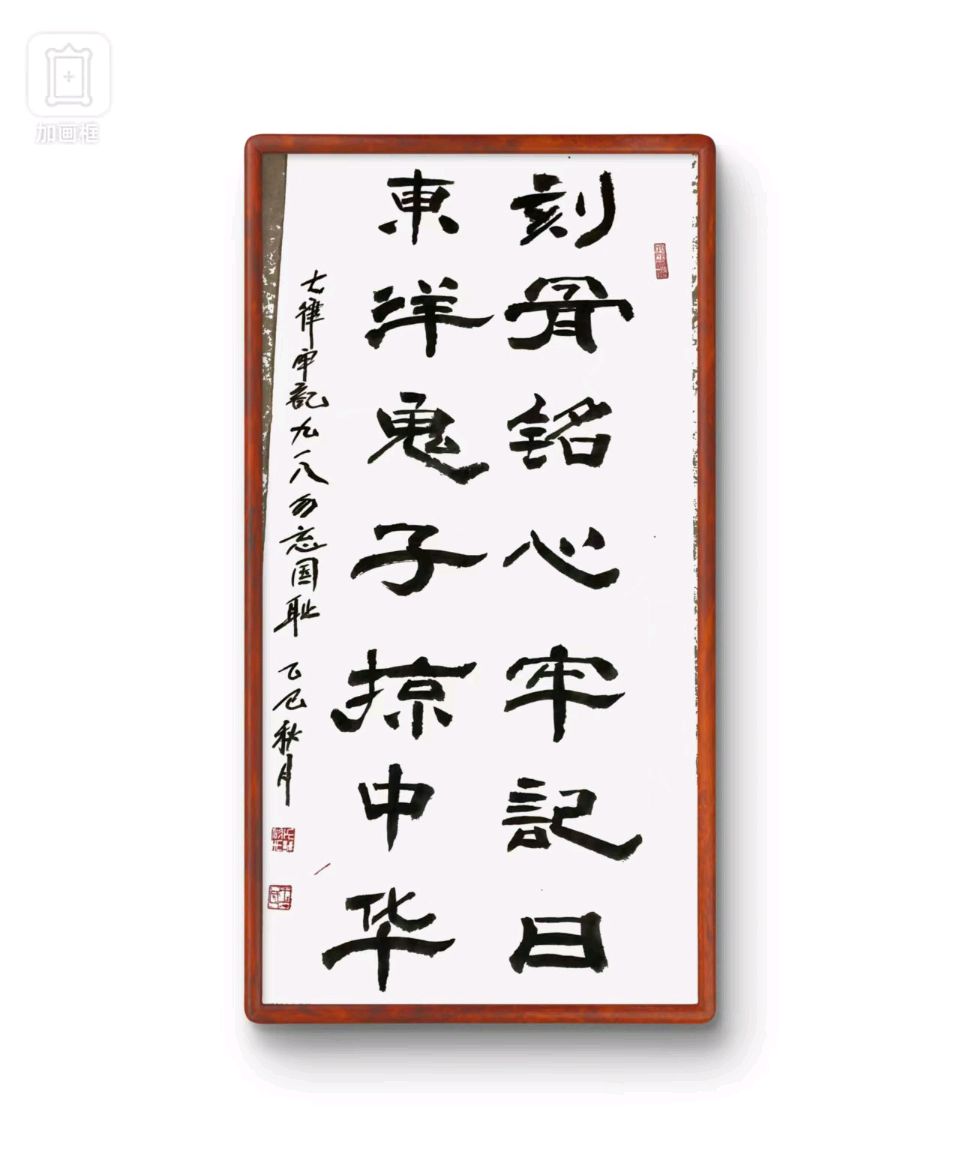 加画框
刻骨铭心牢記日
東洋鬼子掠中华
七律牢記九一八勿忘国耻 乙巳秋月